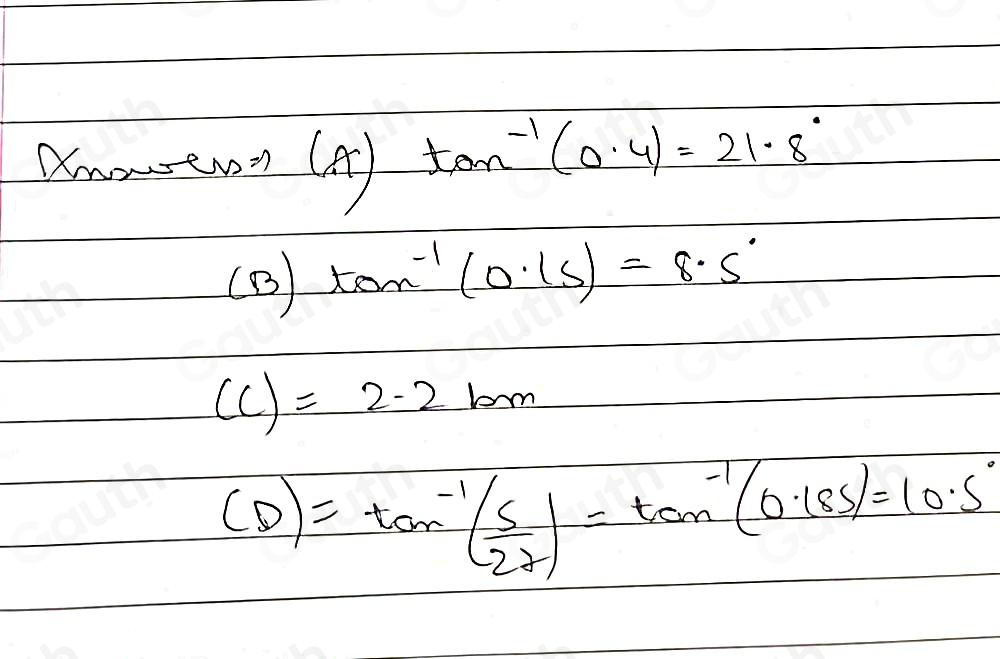 Answers ⇒ (A) tan⁻¹(0.4) = 21.8°
(B) tan⁻¹(0.15) = 8.5°
(C) = 2.2 km
(D) = tan⁻¹(5/27) = tan⁻¹(0.185) = 10.5°